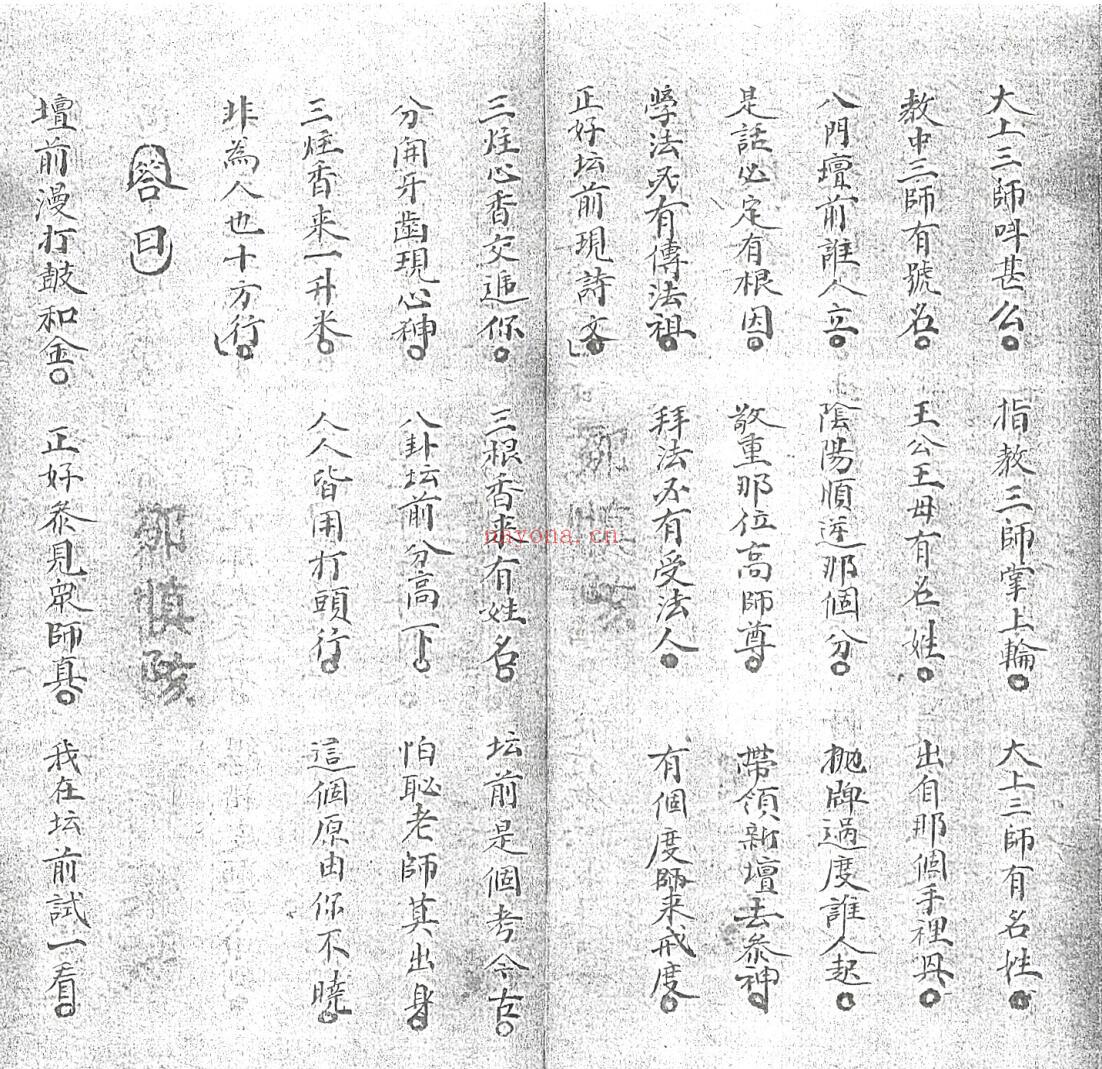 大上三師呌甚么。 指教三師掌上輪。 大上三師有名姓。
教中三師有號名。 王公王母有名姓。 出自那個手裡
八門壇前誰人立。 陰陽順逆那個分。 抛牌過度誰人起。
是話必定有根因。 敬重那位高師尊。 帶領新壇去叅神。
學法必有傳法祖。 拜法必有受法人。 有個度師來戒度。
正好坛前現詩文。
三炷心香交逓你。 三根香來有姓名。 坛前是個考今古。
分開牙齒現心神。 八卦坛前分高下。 怕恥老師莫出身。
三炷香來一升米。 人人皆用打頭行。 這個原由你不曉。
非為人也十方行。
答曰
壇前漫打鼓和金。 正好叅見眾師真。 我在坛前試一看。
nayona.cn